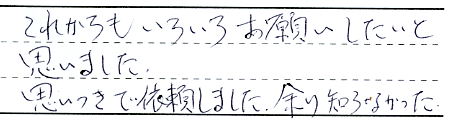 これからもいろいろお願いしたいと
思いました.
思いつきで依頼しました.余り知らなかった.